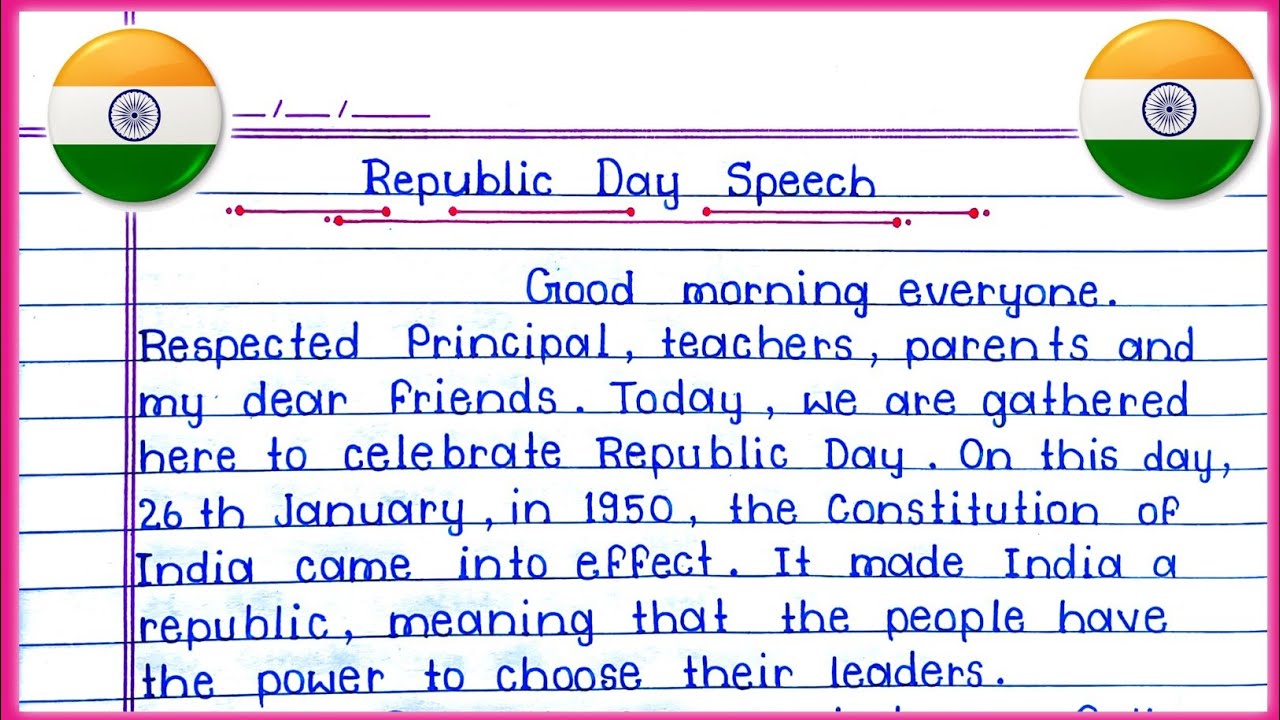 Republic Day Speech
Good morning everyone.
Respected Principal, teachers, parents and
my dear friends. Today, we are gathered
here to celebrate Republic Day. On this day,
26th January, in 1950, the Constitution of
India came into effect. It made India a
republic, meaning that the people have
the power to choose their leaders.